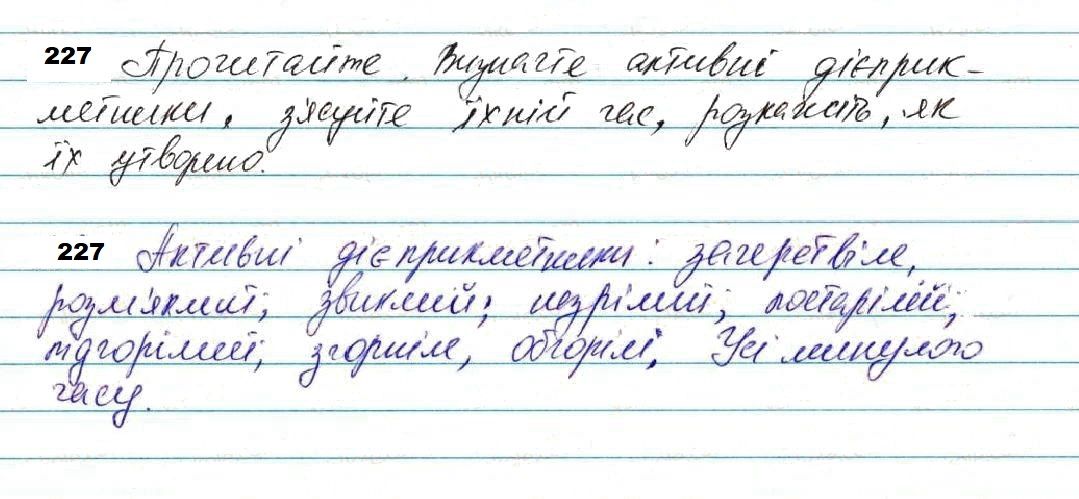 227 Прочитайте. Визначте активні дієприк-
метники, з'ясуйте їхній час, розкажіть, як
їх утворено.
227 Активні дієприкметники: зачерствіле,
розм'яклий; звиклий; незрілий; постарілий;
підгорілий; згоріле, обгорілі, Усі минулого
часу.